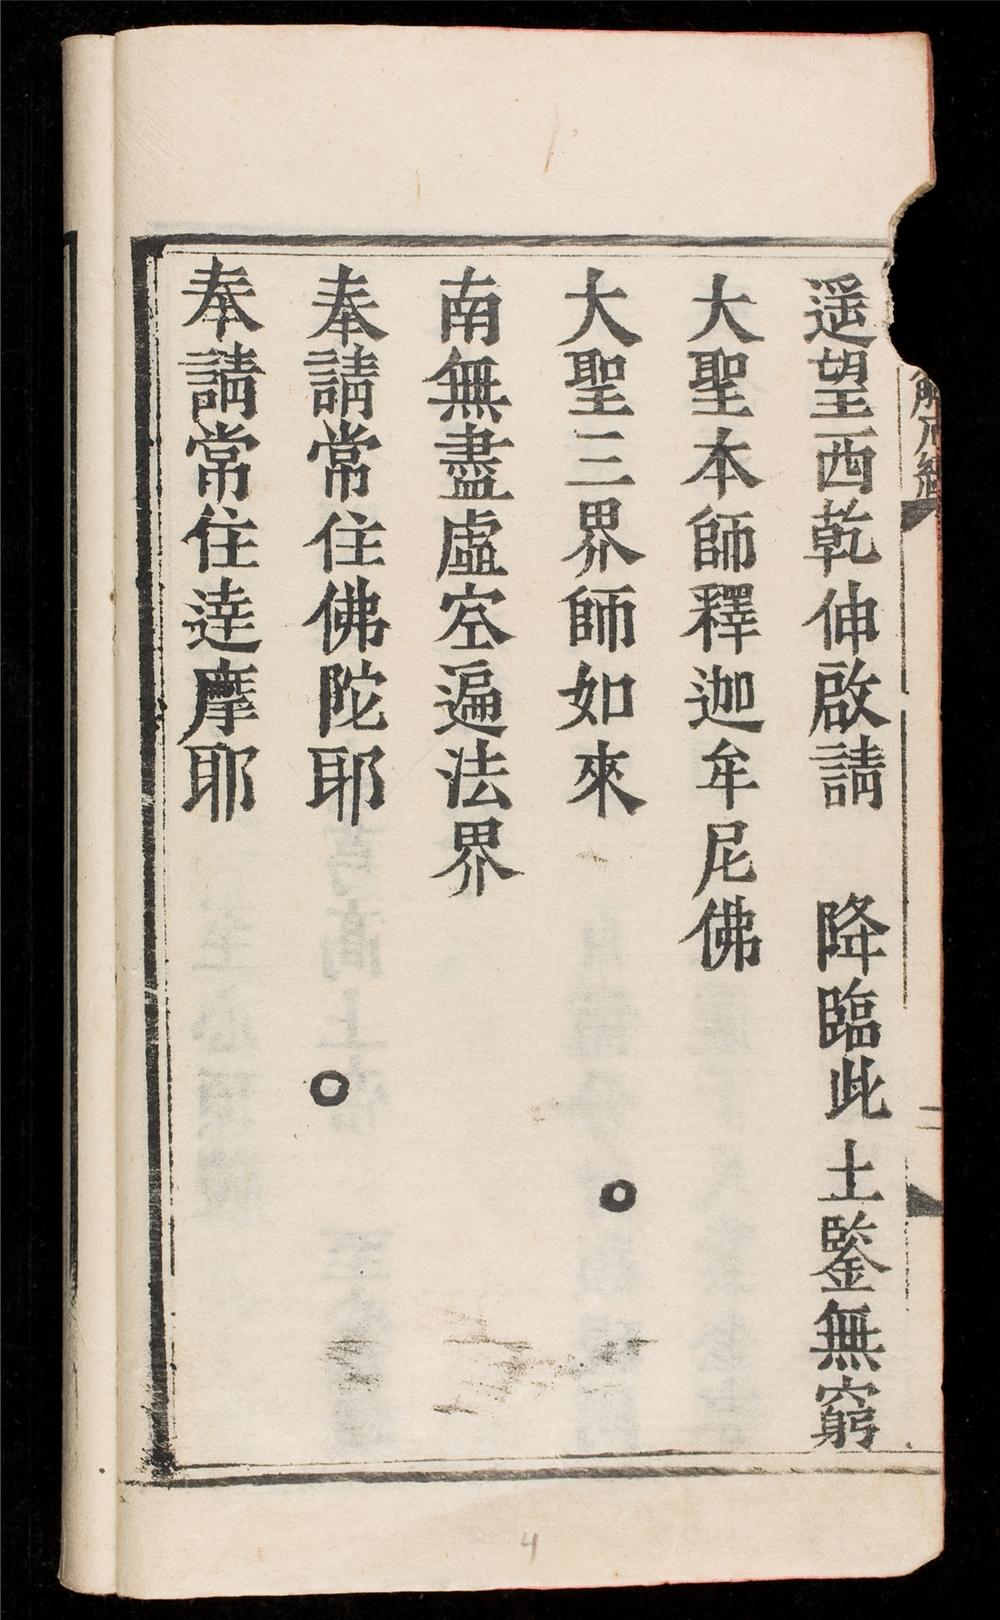 遥望西乾伸啟請　降臨此土鑒無窮
大聖本師釋迦牟尼佛
大聖三界師如來
南無盡虛空遍法界
奉請常住佛陀耶
奉請常住達摩耶
二
4